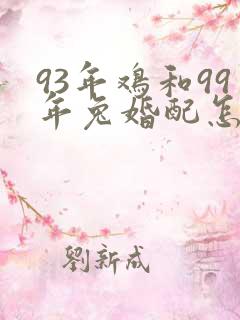 93年鸡和99
年兔婚配怎
劉新成